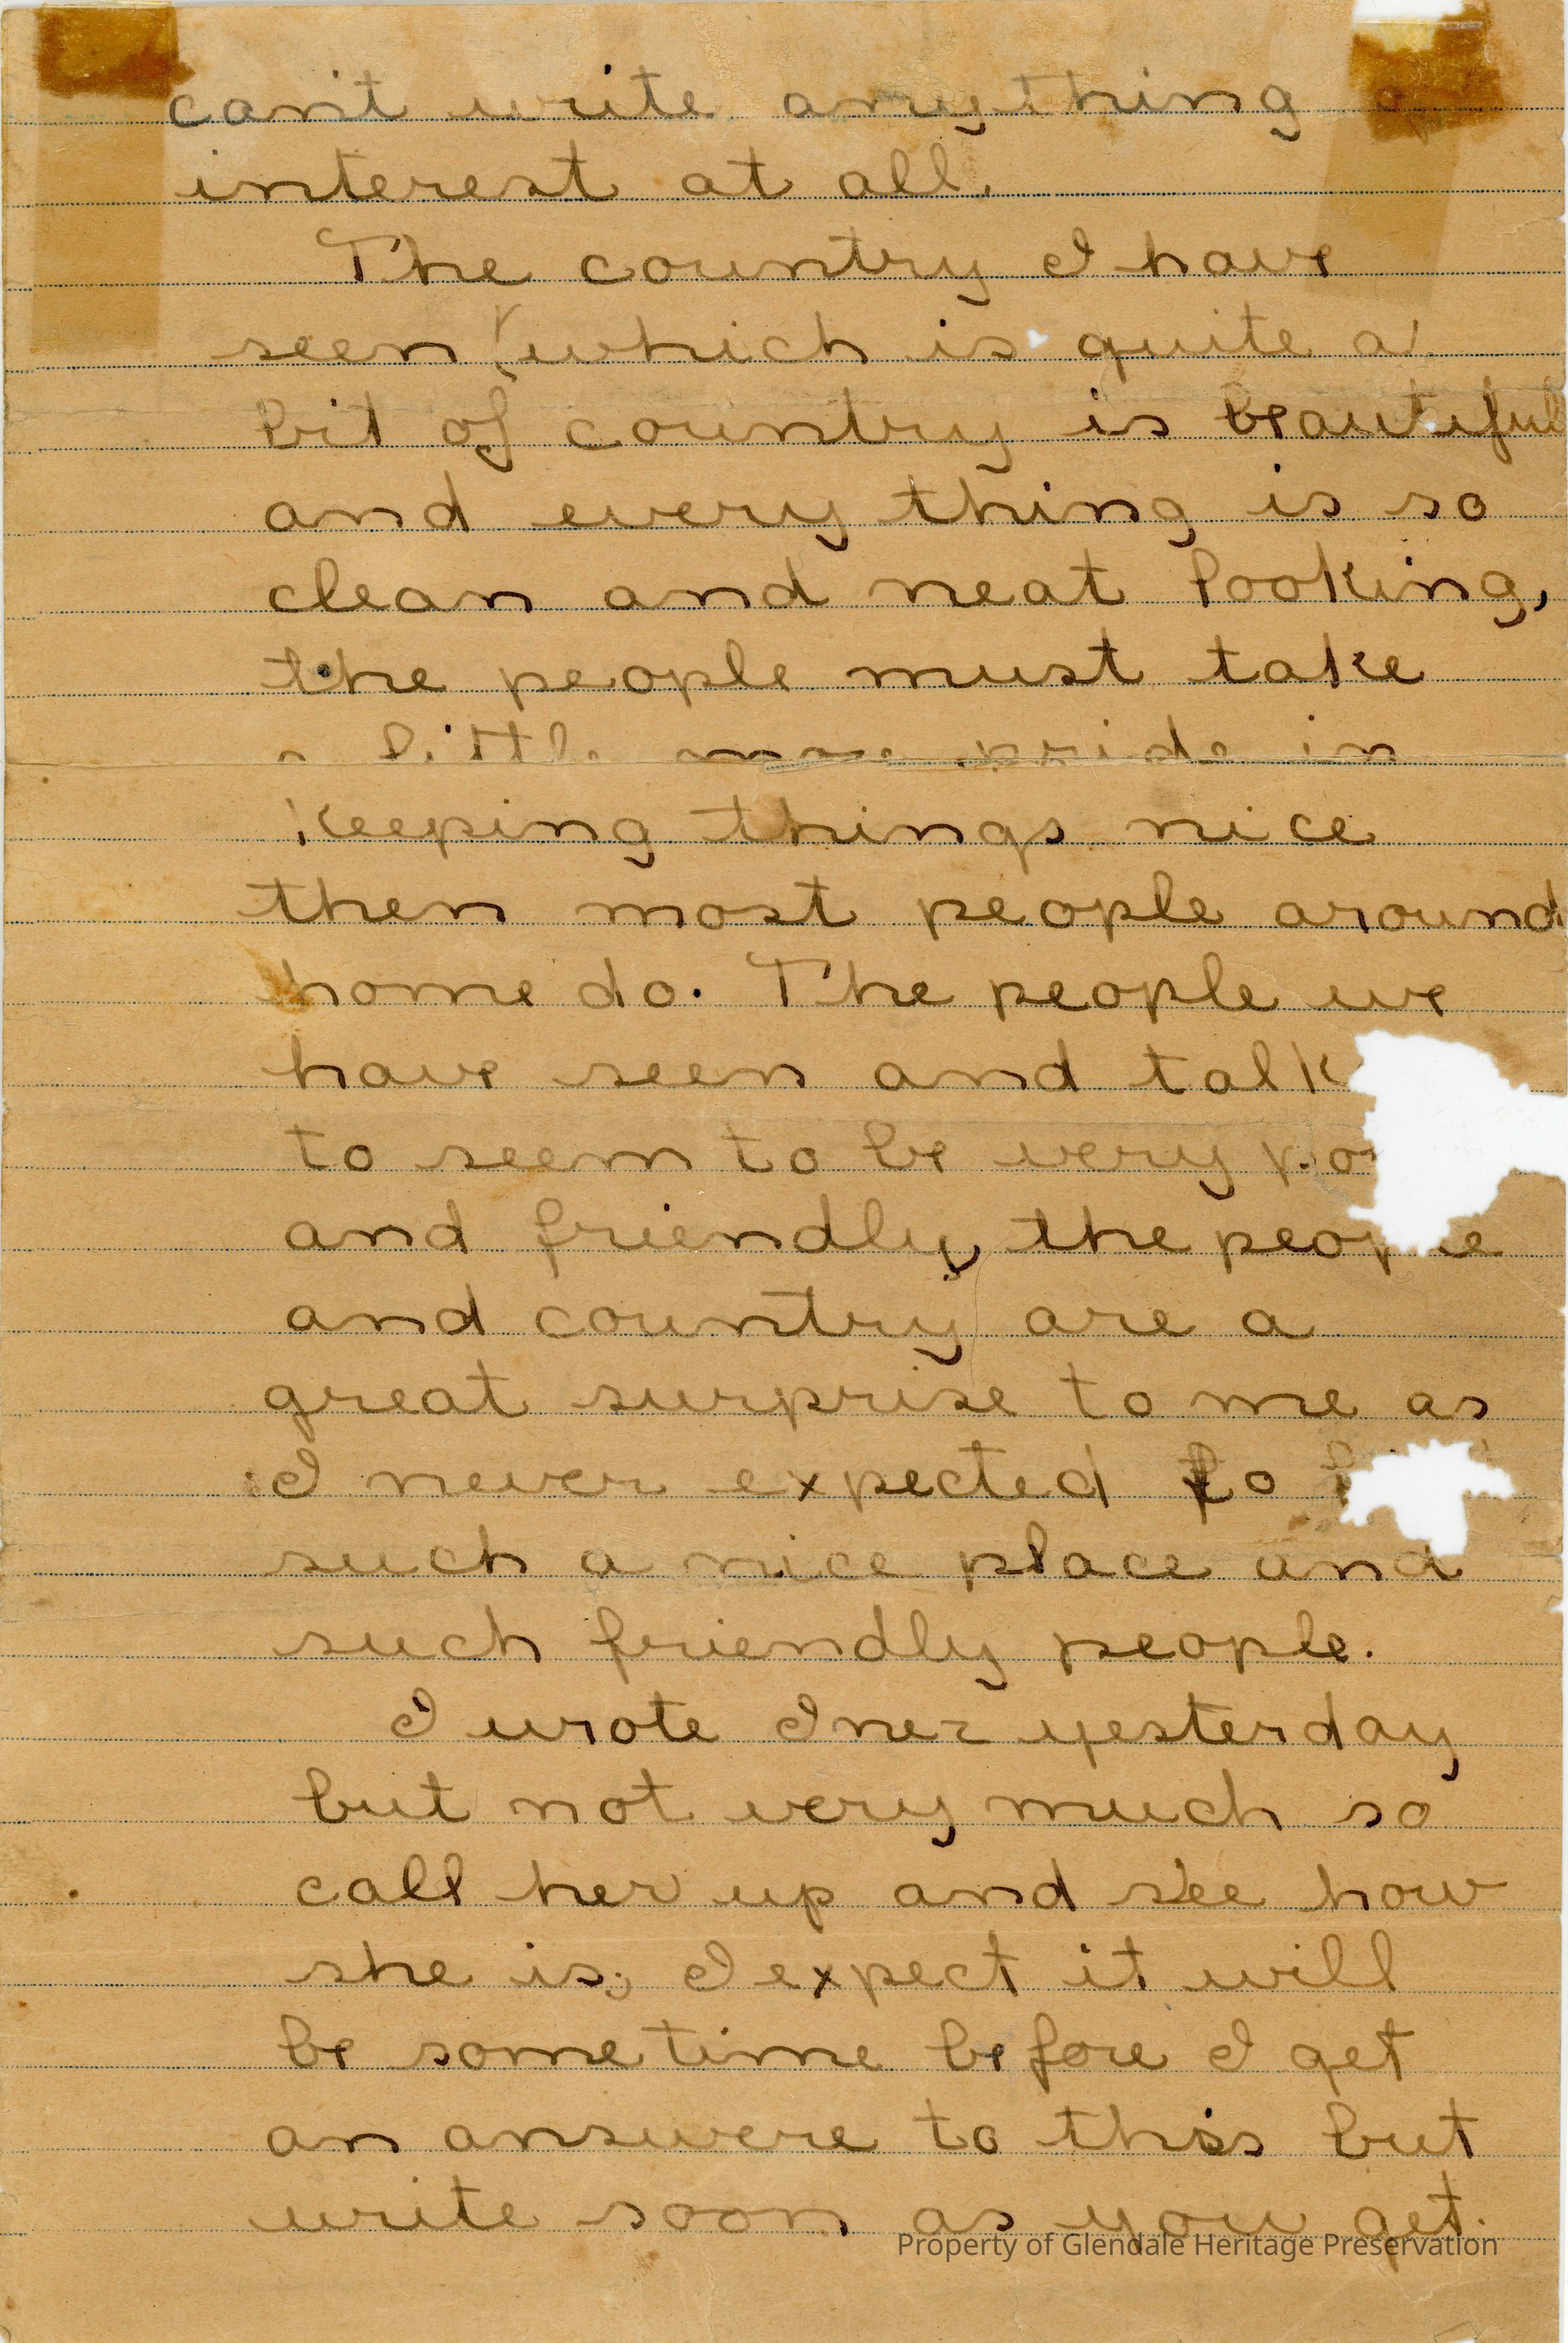 cant write anything
interest at all.
The country I have
seen (which is quite a
bit of country is beautiful
and every thing is so
clean and neat looking,
the people must take
a little more pride in
keeping things nice
then most people around
home do. The people we
have seen and talk
to seem to be very
and friendly, the people
and country are a
great surprise to me as
I never expected to
such a nice place and
such friendly people.
I wrote Inez yesterday
but not very much so
call her up and see how
she is; I expect it will
be some time before I get
an answere to this but
write soon as you get.
Property of Glendale Heritage Preservation